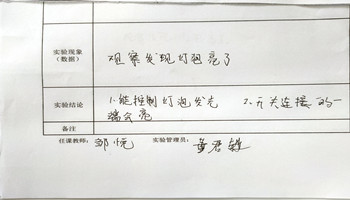 实验现象
(数据)
观察发现灯泡亮了
实验结论
1.能控制灯泡发光 2.开关连接的一
端会亮
备注
任课教师: 邹悦 实验管理员: